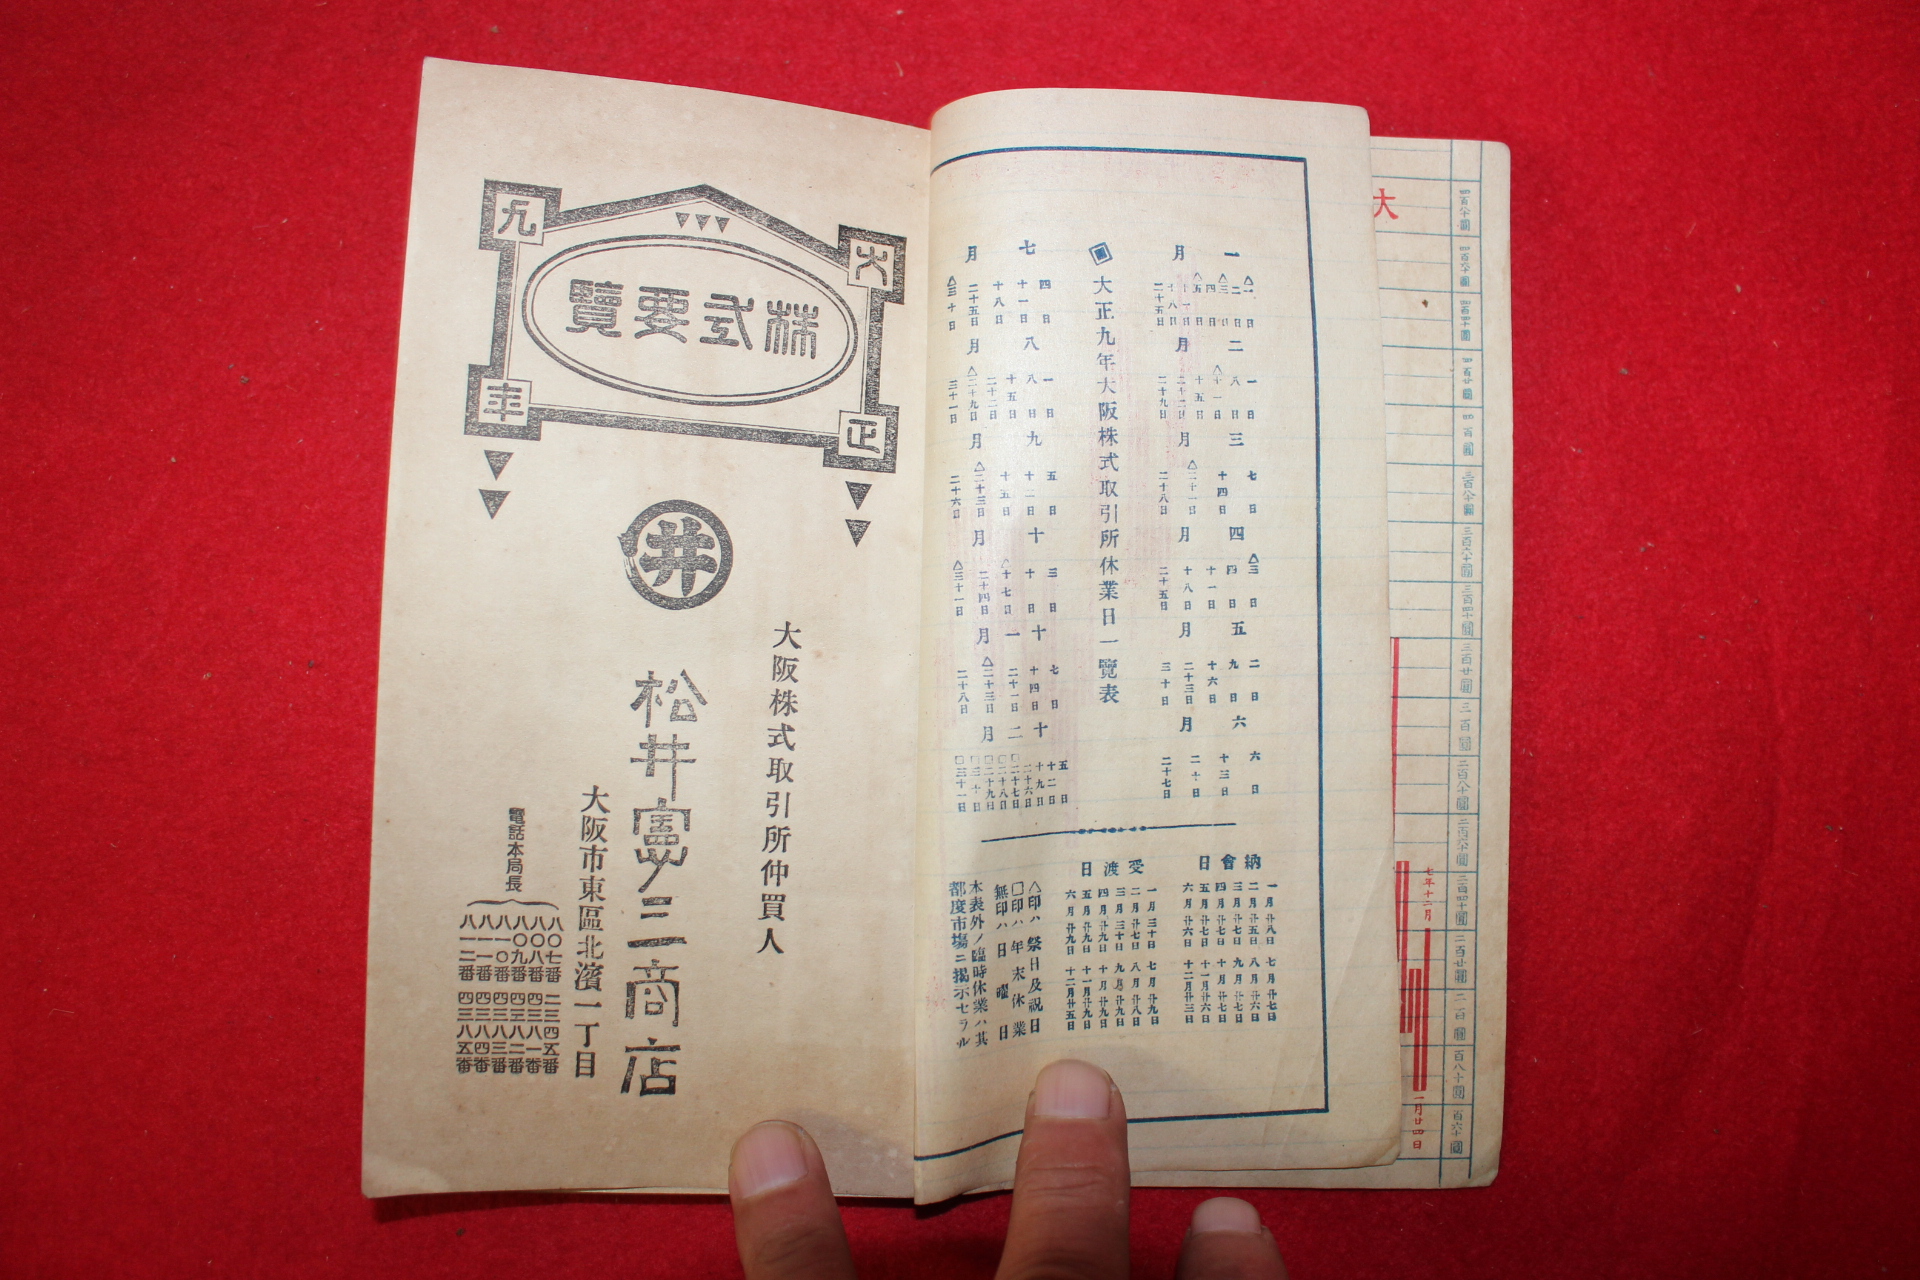 大正九年
株式要覽
井
大阪株式取引所仲買人
松井憲三商店
大阪市東區北濱一丁目
電話本局長
八〇七番 二三四五番
八〇八番 四三八一番
八〇九番 四三八二番
八一〇番 四三八三番
八一一番 四三八四番
八一二番 四三八五番
大正九年大阪株式取引所休業日一覽表
一月 △一日 二日 △三日 四日 △五日 十一日 十八日 二十五日
二月 一日 八日 △十一日 十五日 二十二日 二十九日
三月 七日 十四日 △二十一日 二十八日
四月 △三日 四日 十一日 十八日 二十五日
五月 二日 九日 十六日 二十三日 三十日
六月 六日 十三日 二十日 二十七日
七月 四日 十一日 十八日 二十五日 △三十日
八月 一日 八日 十五日 二十二日 △二十九日 三十一日
九月 五日 十二日 十五日 △二十三日 二十六日
十月 三日 十日 △十七日 二十四日 △三十一日
十一月 七日 十四日 二十一日 △二十三日 二十八日
十二月 五日 十二日 十九日 二十六日 □二十七日 □二十八日 □二十九日 □三十日 □三十一日
納會日
一月廿八日 七月廿七日
二月廿五日 八月廿六日
三月廿七日 九月廿七日
四月廿七日 十月廿七日
五月廿七日 十一月廿六日
六月廿六日 十二月廿三日
受渡日
一月三十日 七月廿九日
二月廿七日 八月廿八日
三月三十日 九月廿九日
四月廿九日 十月廿九日
五月廿九日 十一月廿九日
六月廿九日 十二月廿五日
△印ハ祭日及祝日
□印ハ年末休業
無印ハ日曜日
本表外ノ臨時休業ハ其
都度市場ニ揭示セラル
大
七年十二月
一月廿四日
四百八十圓
四百六十圓
四百四十圓
四百廿圓
四百圓
三百八十圓
三百六十圓
三百四十圓
三百廿圓
三百圓
二百八十圓
二百六十圓
二百四十圓
二百廿圓
二百圓
百八十圓
百六十圓